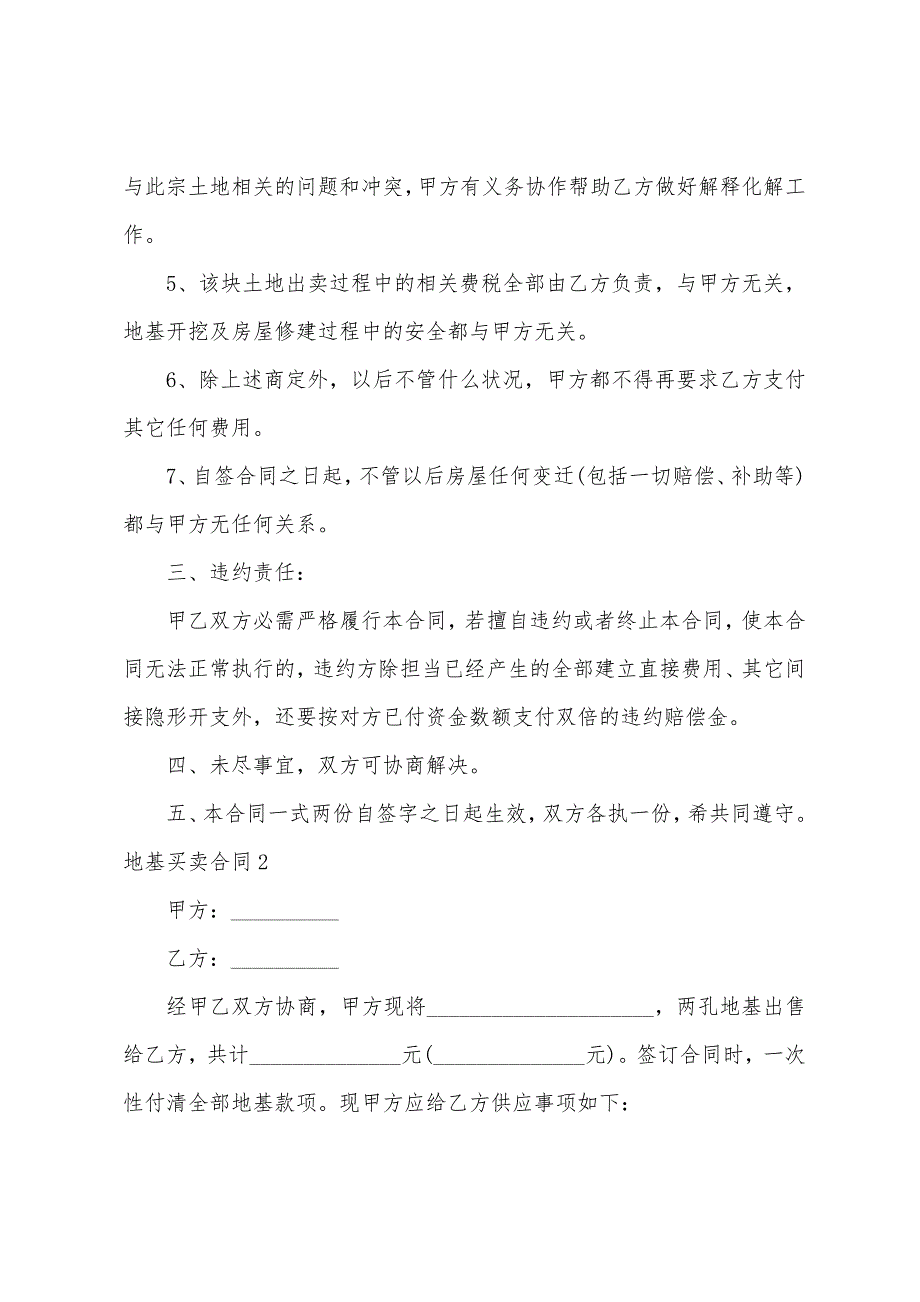 与此宗土地相关的问题和冲突，甲方有义务协作帮助乙方做好解释化解工
作。
5、该块土地出卖过程中的相关费税全部由乙方负责，与甲方无关，
地基开挖及房屋修建过程中的安全都与甲方无关。
6、除上述商定外，以后不管什么状况，甲方都不得再要求乙方支付
其它任何费用。
7、自签合同之日起，不管以后房屋任何变迁(包括一切赔偿、补助等)
都与甲方无任何关系。
三、违约责任：
甲乙双方必需严格履行本合同，若擅自违约或者终止本合同，使本合
同无法正常执行的，违约方除担当已经产生的全部建立直接费用、其它间
接隐形开支外，还要按对方已付资金数额支付双倍的违约赔偿金。
四、未尽事宜，双方可协商解决。
五、本合同一式两份自签字之日起生效，双方各执一份，希共同遵守。
地基买卖合同2
甲方：__________
乙方：__________
经甲乙双方协商，甲方现将_____________________，两孔地基出售
给乙方，共计______________元(______________元)。签订合同时，一次
性付清全部地基款项。现甲方应给乙方供应事项如下：